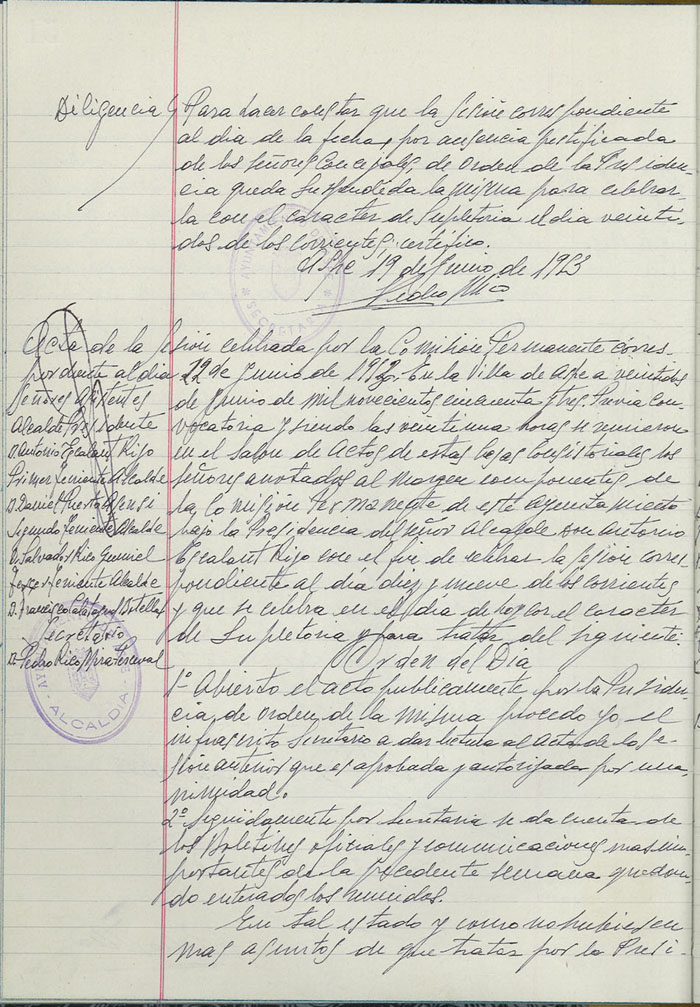 Diligencia Para hacer constar que la sesión correspondiente
al dia de la fecha, por ausencia justificada
de los señores Concejales, de orden de la Presiden-
cia queda suspendida la misma para celebrar-
la con el caracter de Supletoria el dia veinti-
dos de los corrientes; certifico.
Aspe 19 de Junio de 1953
Pedro Rico
AYUNTAMIENTO DE
SECRETARIA
Acta de la sesión celebrada por la Comisión Permanente corres-
pondiente al dia 22 de Junio de 1953. En la Villa de Aspe a veintidos
Señores asistentes
de Junio de mil novecientos cincuenta y tres. Previa con-
Alcalde Presidente
vocatoria y siendo las veinte una horas se reunieron
D. Antonio Escalant Rigo
en el salon de actos de estas Casas Consistoriales los
Primer Teniente Alcalde
señores anotados al margen componentes de
D. Daniel Puerto Asensi
la Comisión Permanente de este Ayuntamiento
Segundo Teniente Alcalde
bajo la Presidencia del señor Alcalde don Antonio
D. Salvador Rico
Escalant Rigo con el fin de celebrar la sesión corres-
Tercer Teniente Alcalde
pondiente al dia diez y nueve de los corrientes
D. Francisco Calatayud Botella
y que se celebra en el dia de hoy con el caracter
Secretario
de Supletoria y para tratar del siguiente.
D. Pedro Rico Mira Perceval
ALCALDIA
Orden del Dia
1º Abierto el acto publicamente por la Presiden-
cia, de orden de la misma procedo yo el
infrascrito Secretario a dar lectura al acta de la se-
sión anterior que es aprobada y autorizada por una-
nimidad.
2º Seguidamente por Secretaria se da cuenta de
los Boletines oficiales y comunicaciones mas im-
portantes de la precedente semana quedan-
do enterados los reunidos.
En tal estado y como no hubiesen
mas asuntos de que tratar por la Presi-